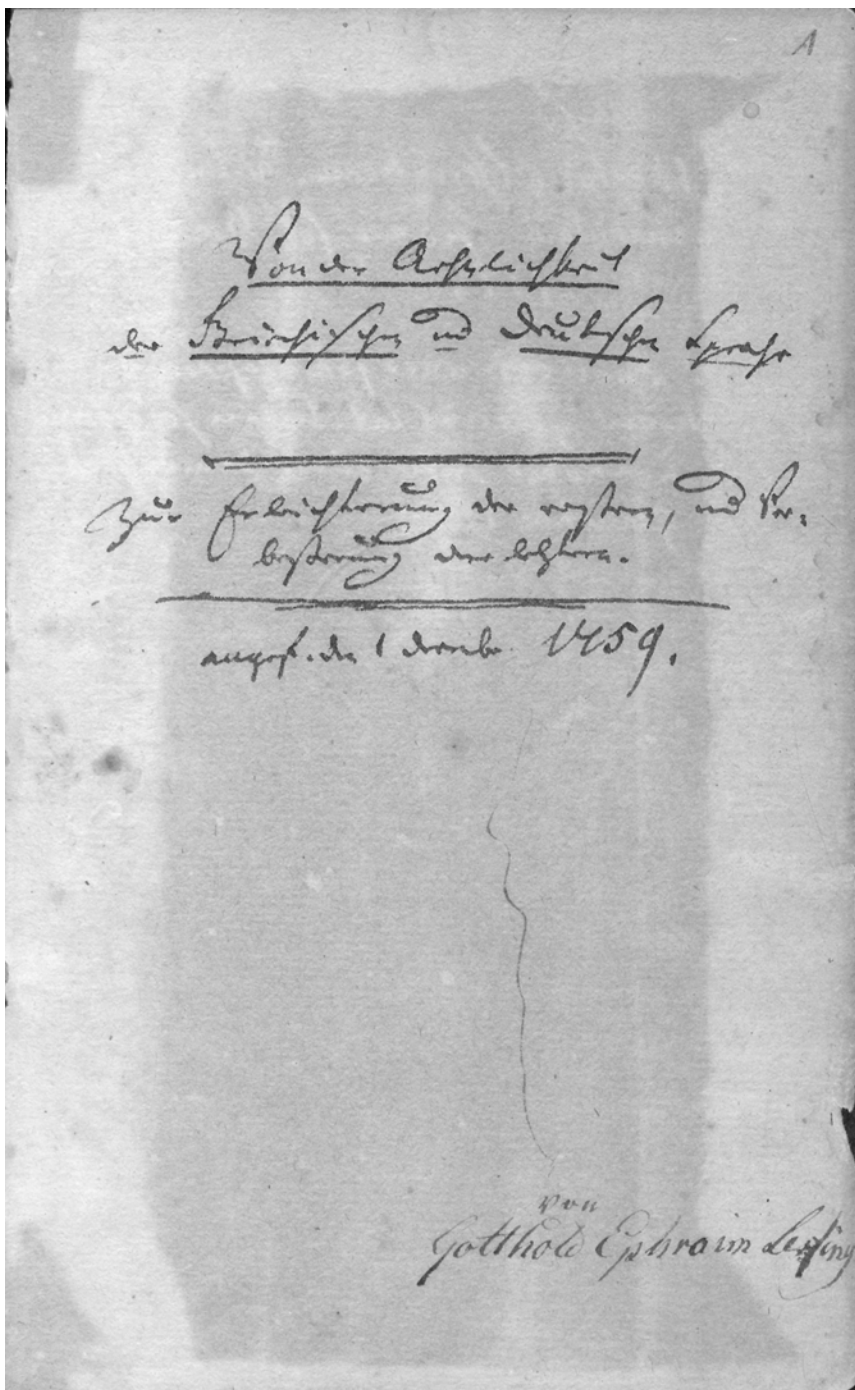 A
Von der Aehnlichkeit
der Griechischen und Deutschen Sprache
Zur Erleichterung der erstern, und Ver-
beßerung der letztern.
angef. den 1 Decembr. 1759.
von
Gotthold Ephraim Lessing